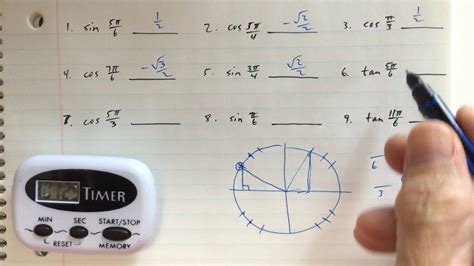 1. sin 5π/6 1/2 2. cos 5π/4 -√2/2 3. cos π/3 1/2
4. cos 7π/6 -√3/2 5. sin 3π/4 √2/2 6. tan 5π/6
7. cos 5π/3 8. sin π/6 9. tan 11π/6
6
3
TIMER
MIN SEC START/STOP
RESET MEMORY